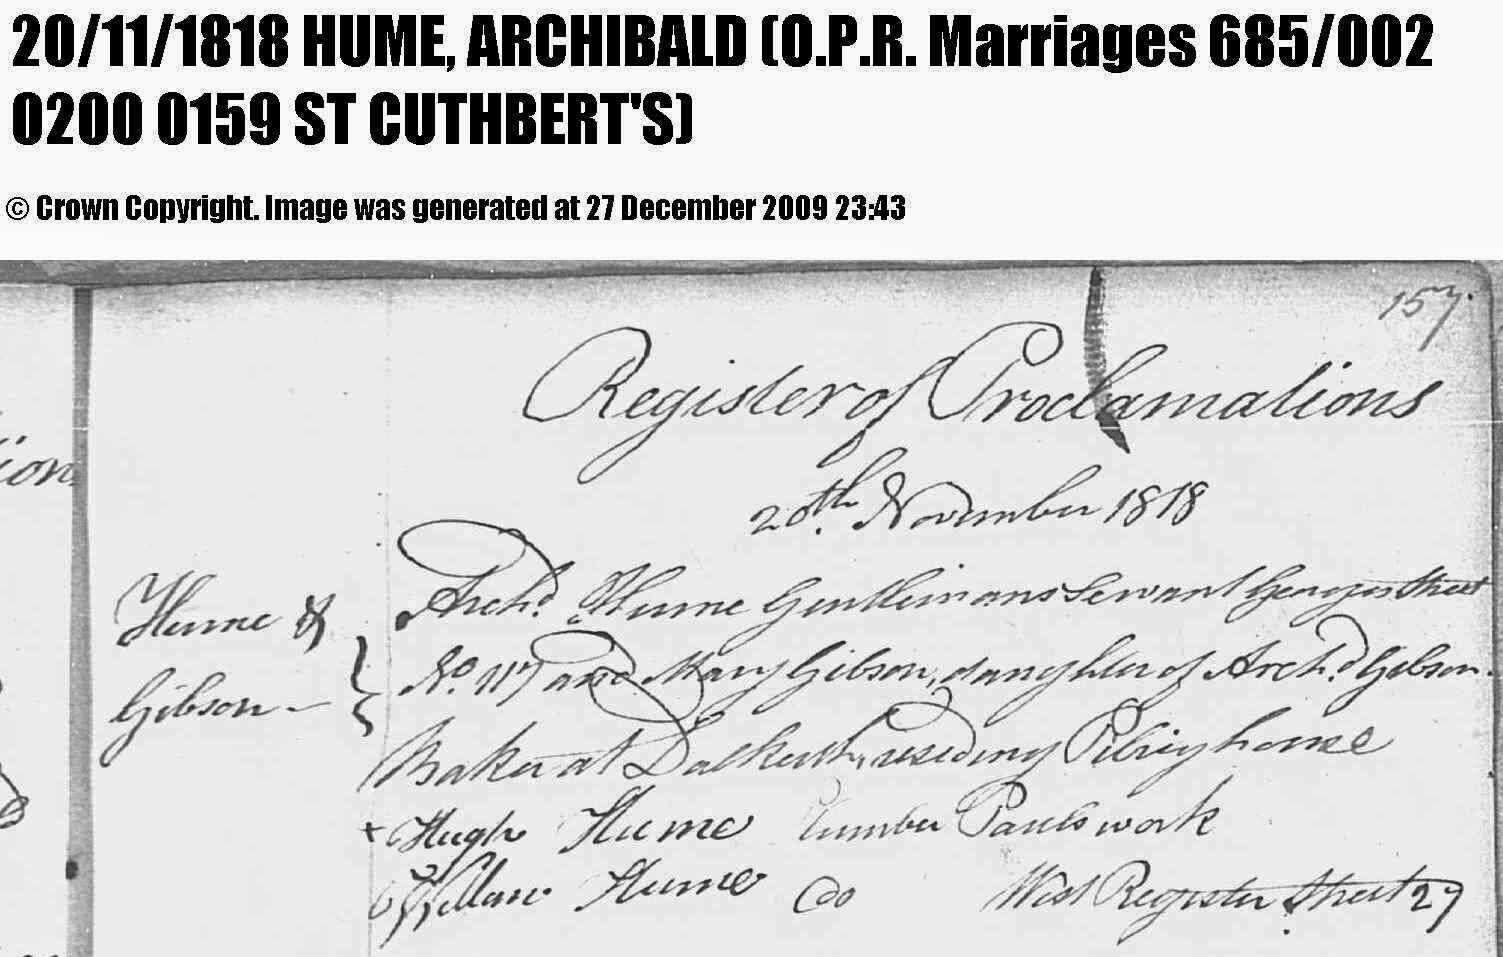 20/11/1818 HUME, ARCHIBALD (O.P.R. Marriages 685/002
0200 0159 ST CUTHBERT'S)
© Crown Copyright. Image was generated at 27 December 2009 23:43
157
Register of Proclamations
20th. November 1818
Hume &
Gibson
Archd. Hume Gentlemans Servant Georges Street
No. 117 and Mary Gibson, daughter of Archd. Gibson
Baker at Dalkeith, residing Pilrig house
Hugh Hume Plumber Pauls work
William Hume Do West Register Street 27